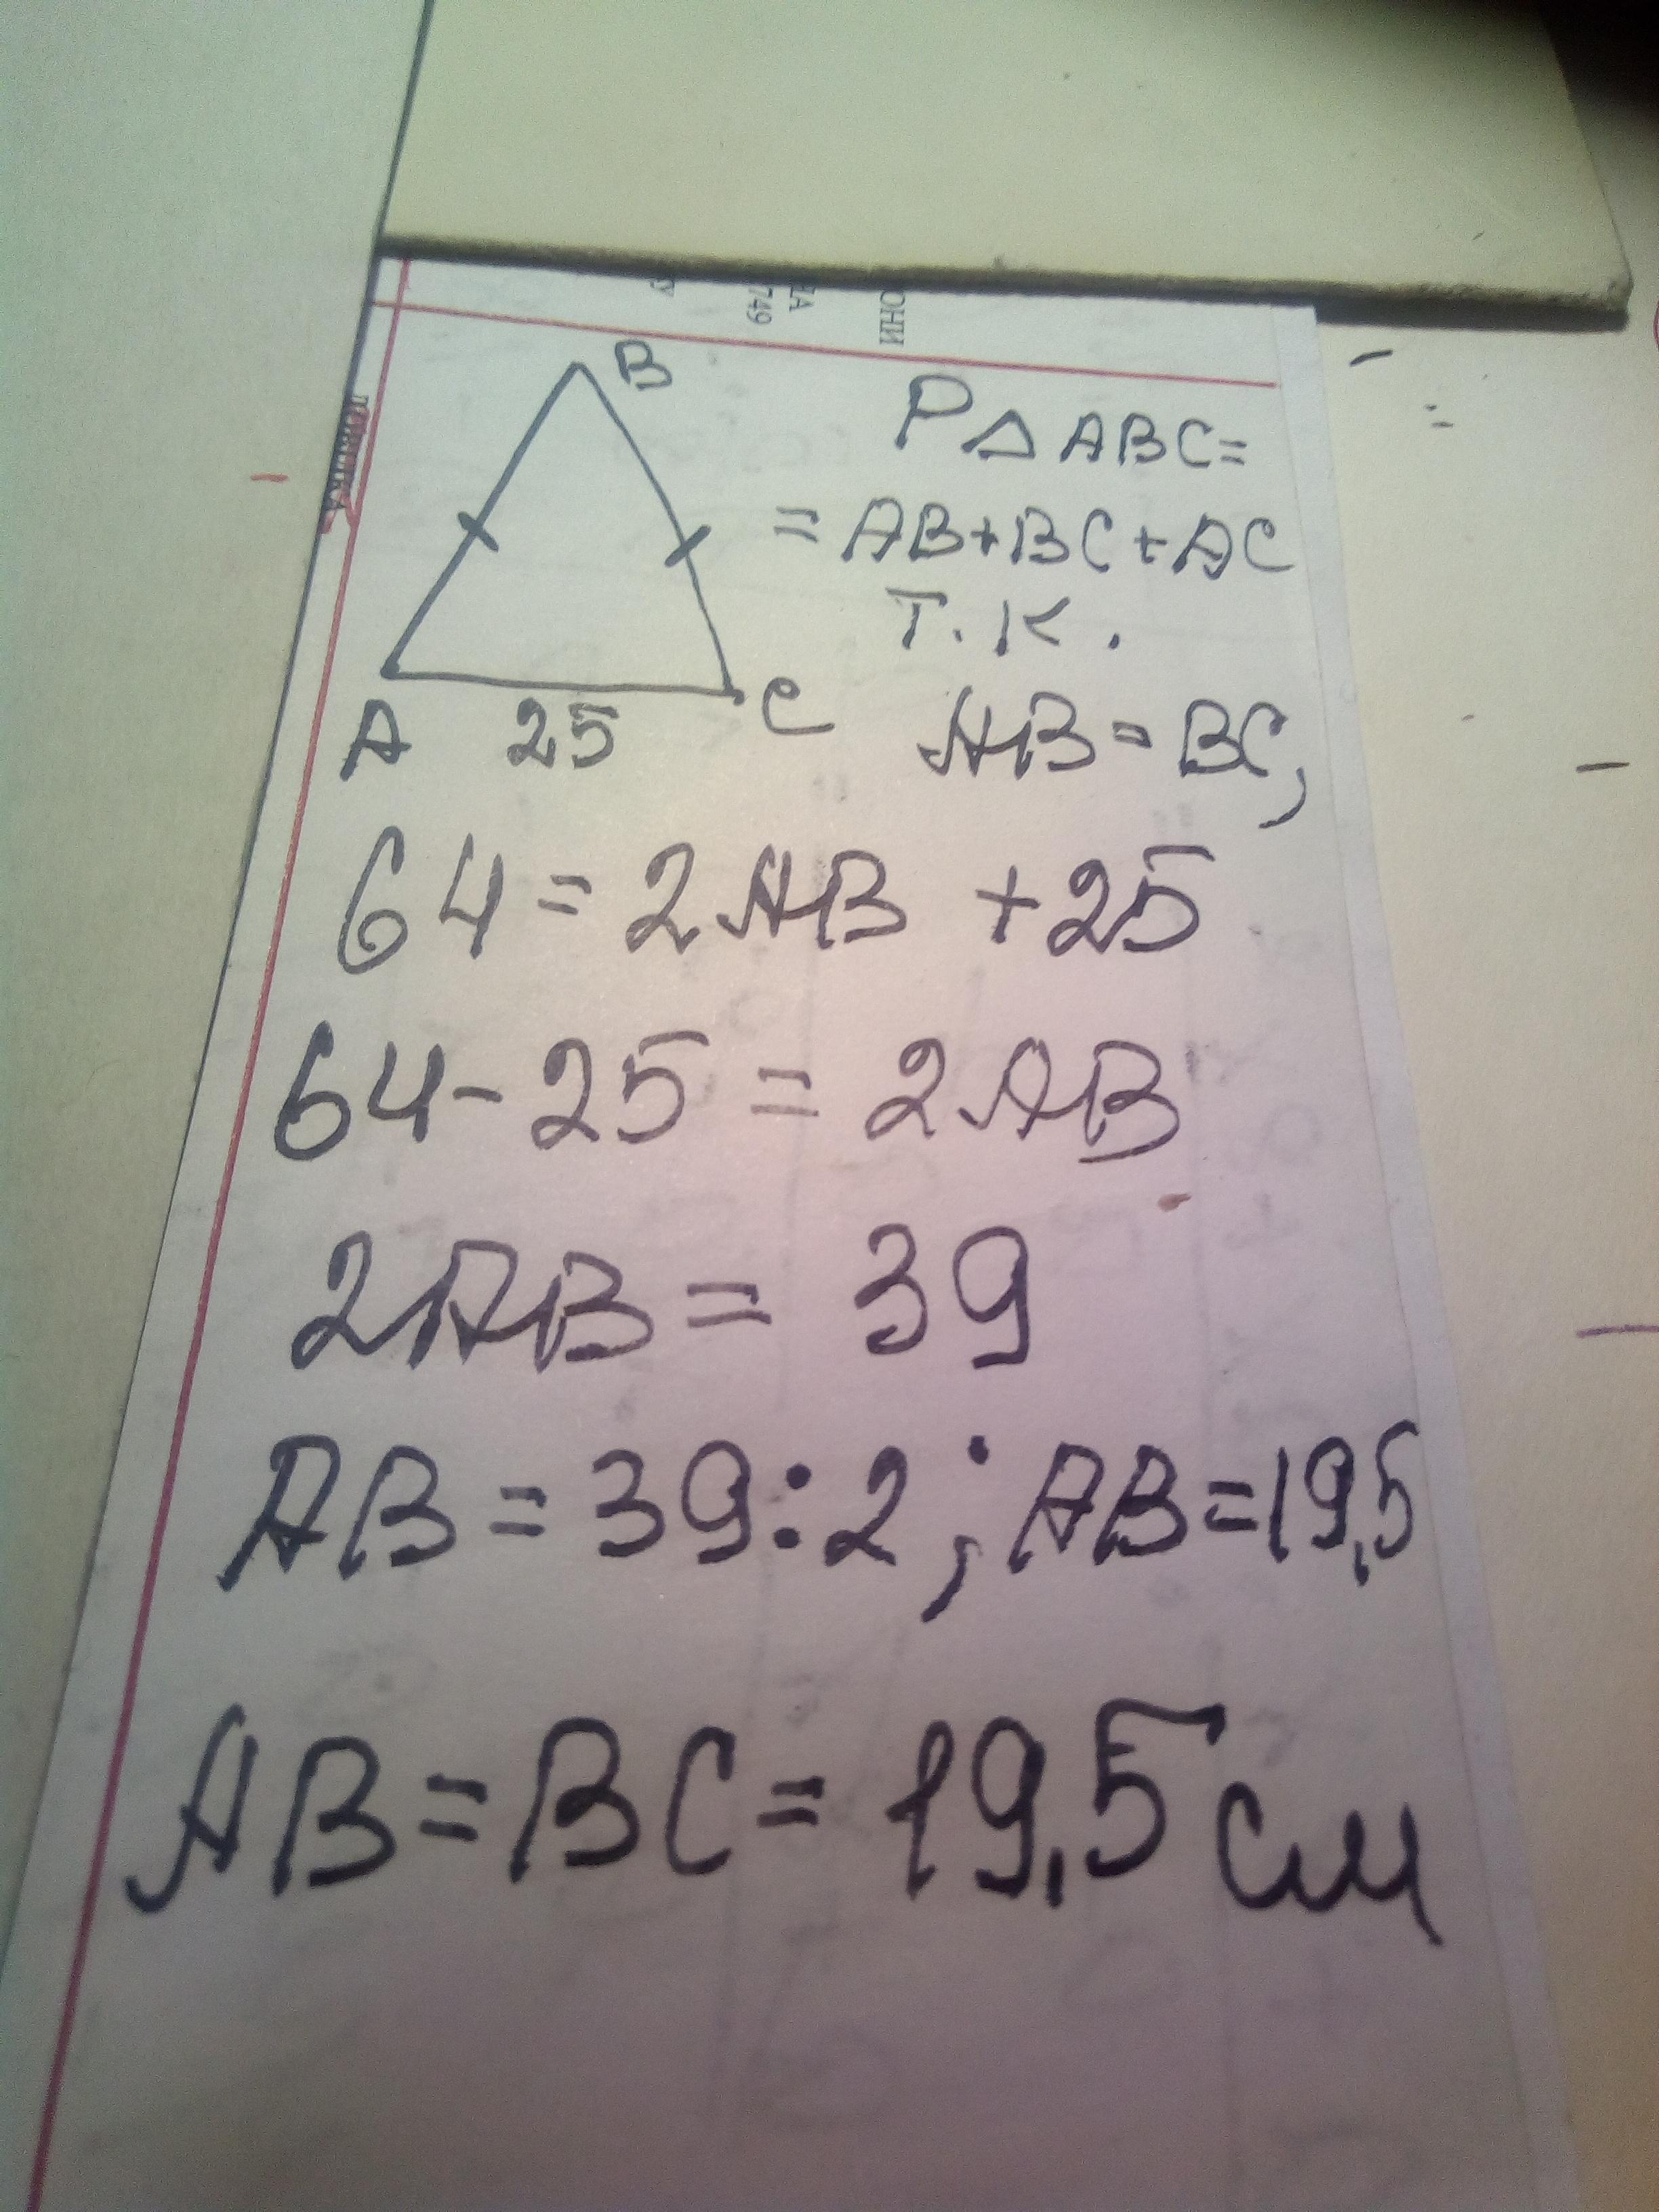 ЮНИ
ЦА
749
У
B
P△ABC=
=AB+BC+AC
т.к.
A 25 C AB=BC,
64=2AB+25
64-25=2AB
2AB=39
AB=39:2; AB=19,5
AB=BC=19,5 см